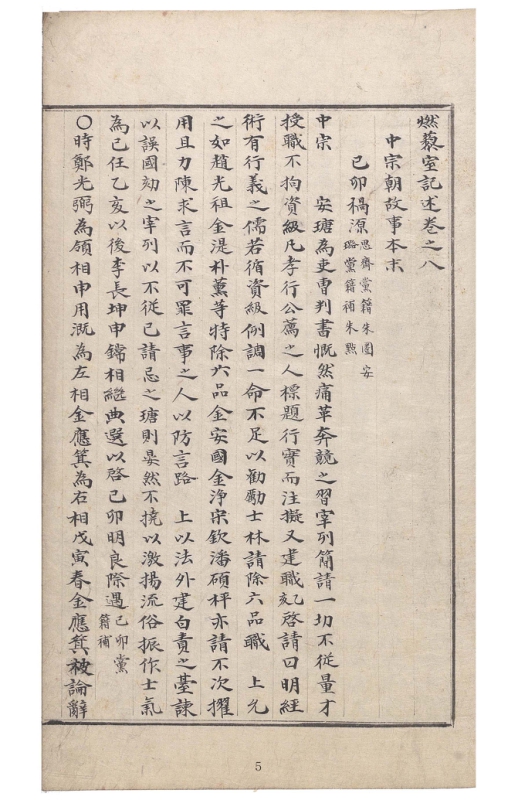 燃藜室記述卷之八
中宗朝故事本末
己卯禍源 思齋黨籍朱圈安
璐黨籍補朱點
中宗 安瑭為吏曹判書慨然痛革奔競之習宰列簡請一切不從量才
授職不拘資級凡孝行公薦之人標題行實而注擬又建職啓請曰明經
術有行義之儒若循資級例調一命不足以勸勵士林請除六品職 上允
之如趙光祖金湜朴薰等特除六品金安國金淨宋欽潘碩枰亦請不次擢
用且力陳求言而不可罪言事之人以防言路 上以法外建白責之臺諫
以誤國劾之宰列以不從己請忌之瑭則晏然不撓以激揚流俗振作士氣
為己任乙亥以後李長坤申鏛相繼典選以啓己卯明良際遇 己卯黨
籍補
〇時鄭光弼為領相申用漑為左相金應箕為右相戊寅春金應箕被論辭
5